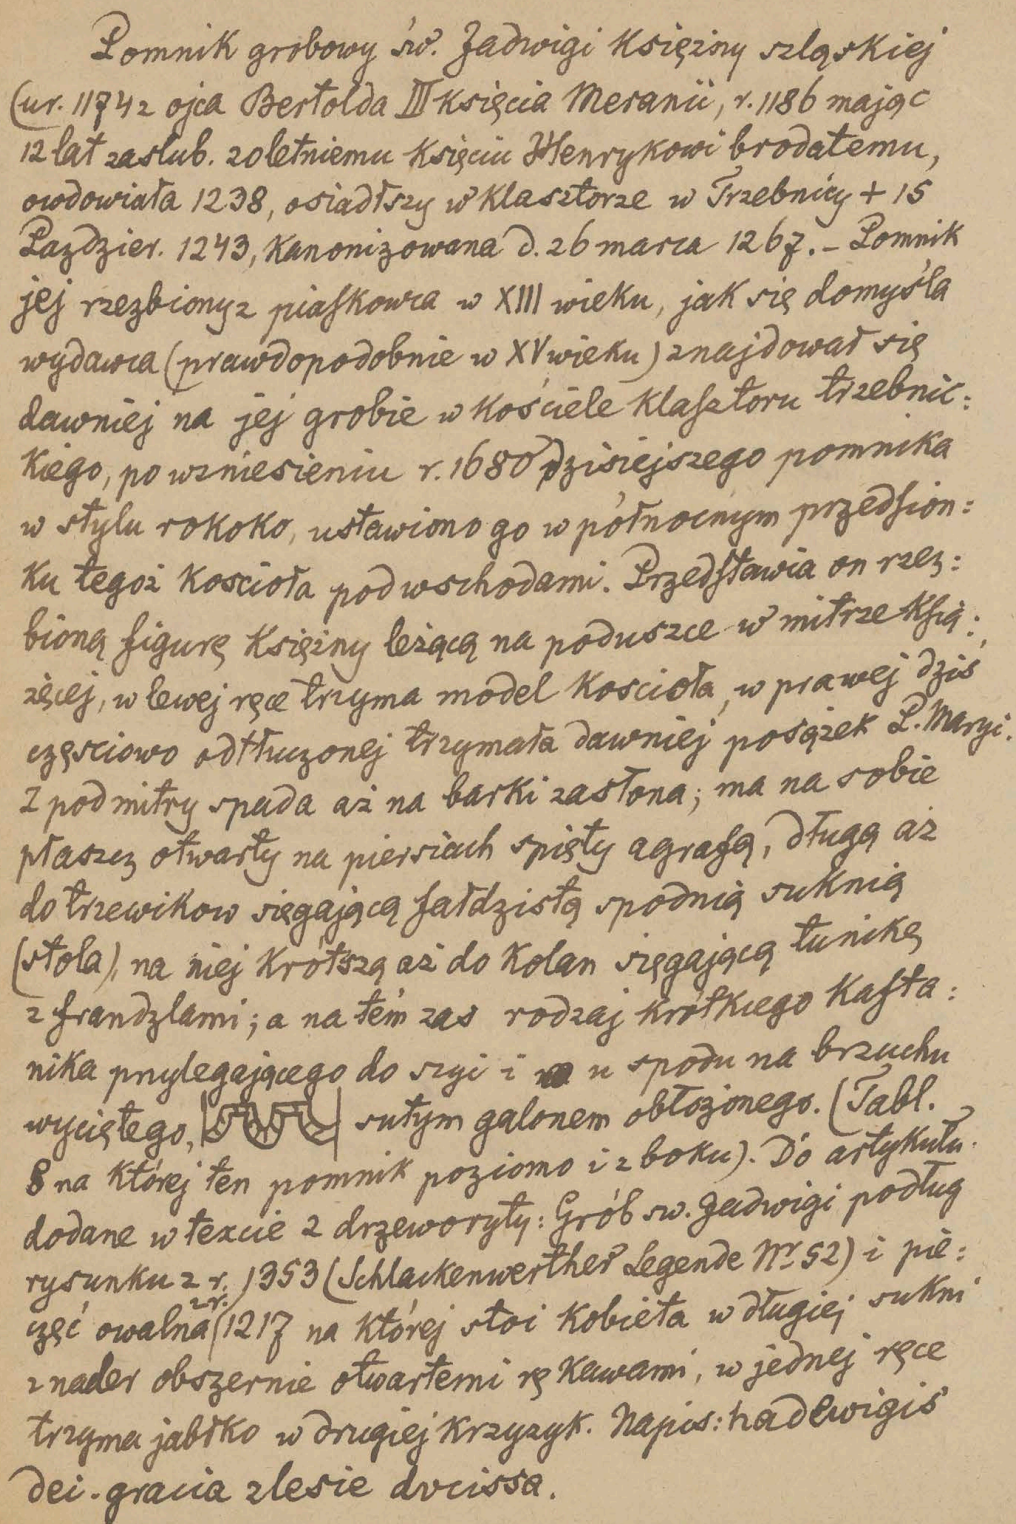 Pomnik grobowy św. Jadwigi Księżny szląskiej
(ur. 1174 z ojca Bertolda III księcia Meranii, r. 1186 mając
12 lat zaślub. 20letniemu Księciu Henrykowi brodatemu,
owdowiała 1238, osiadłszy w Klasztorze w Trzebnicy + 15
Paździer. 1243, Kanonizowana d. 26 marca 1267. – Pomnik
jej rzezbiony z piaskowca w XIII wieku, jak się domyśla
wydawca (prawdopodobnie w XV wieku) znajdował się
dawniej na jej grobie w Kościele Klasztoru trzebnic:
kiego, po wzniesieniu r. 1680 dzisiejszego pomnika
w stylu rokoko, ustawiono go w północnym przedsion:
ku tegoż Kościoła pod wschodami. Przedstawia on rzez:
bioną figurę Księżny leżącą na poduszce w mitrze Ksią:
żęcej, w lewej ręce trzyma model Kościoła, w prawej dziś
częściowo odtłuczonej trzymała dawniej posążek P. Maryi.
Z pod mitry spada aż na barki zasłona; ma na sobie
płaszcz otwarty na piersiach spięty agrafą, długą aż
do trzewikow sięgającą fałdzistą spodnią suknią
(stola), na niej krótszą aż do Kolan sięgającą tunikę
z frandzlami; a na tém zas rodzaj krótkiego Kafta:
nika przylegającego do szyi i u spodu na brzuchu
wyciętego, sutym galonem obłożonego. (Tabl.
8 na której ten pomnik poziomo i z boku). Do artykułu
dodane w texcie 2 drzeworyty: Grób sw. Jadwigi podług
rysunku z r. 1353 (Schlackenwerther Legende Nr 52) i pie:
częć owalna z r. (1217 na której stoi Kobieta w długiej sukni
z nader obszernie otwartemi rękawami, w jednej ręce
trzyma jabłko w drugiej Krzyzyk. Napis: hadewigis
dei . gracia zlesie dvcissa.